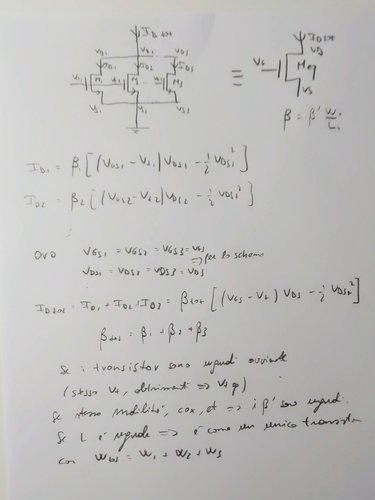 ID tot
VD1 VD2 VD3
ID1 ID2 ID3
M1 M2 M3
VS1 VS2 VS3
≡
ID tot
VD
VG Meq
VS
β = β' W/L
ID1 = β1 [(VGS1 - Vt1) VDS1 - 1/2 VDS1²]
ID2 = β2 [(VGS2 - Vt2) VDS2 - 1/2 VDS2²]
⋮
ovo VGS1 = VGS2 = VGS3 = VGS
VDS1 = VDS2 = VDS3 = VDS
=> per lo schema
IDtot = ID1 + ID2 + ID3 = βtot [(VGS - Vt) VDS - 1/2 VDS²]
βtot = β1 + β2 + β3
Se i transistor sono uguali
(stesso Vt, altrimenti => Vt eq)
Se stessa mobilità, cox, => i β' sono uguali.
Se L è uguale => è come un unico transistor
con Wtot = W1 + W2 + W3